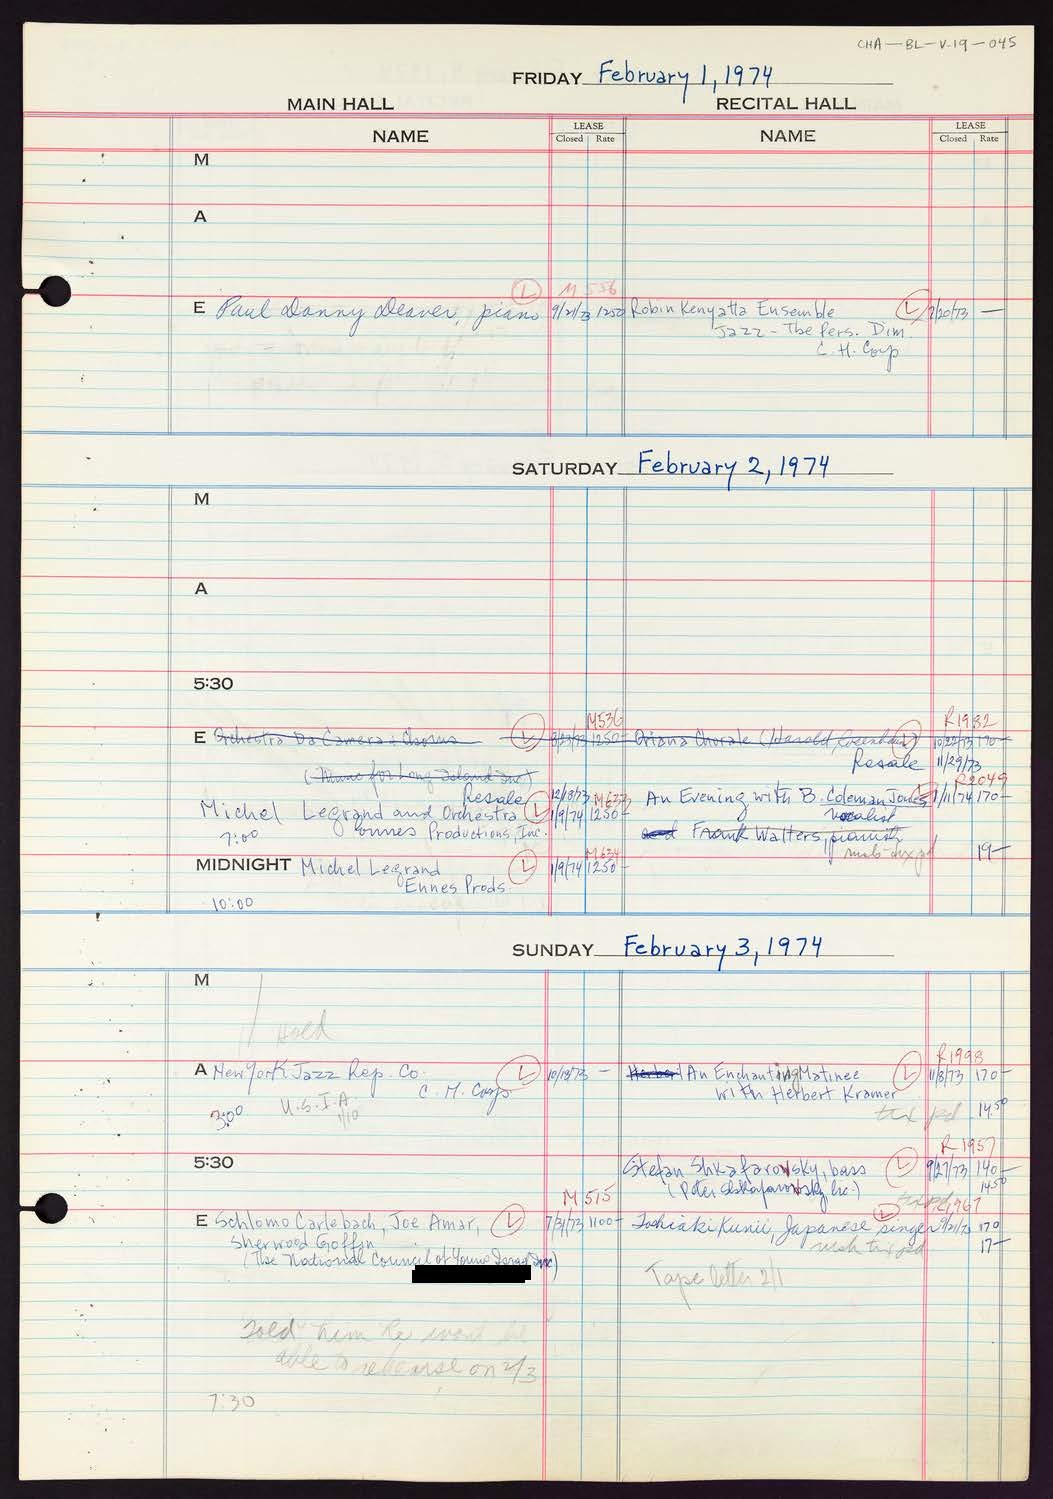 CHA-BL-V-19-045
FRIDAY February 1, 1974
MAIN HALL RECITAL HALL
NAME LEASE Closed Rate NAME LEASE Closed Rate
M
A
L M 556
E Paul Danny Deaver, piano 9/21/73 1250 Robin Kenyatta Ensemble L 2/20/73 —
Jazz - The Pers. Dim.
C. H. Corp
SATURDAY February 2, 1974
M
A
5:30
M536 R1932
E Orchestra Da Camera & Chorus L 8/23/73 1250- Oriana Chorale (Harold Rosenbaum) L 10/22/73 170-
(Music for Long Island Inc) Resale 11/29/73
Resale 12/18/73 M633 R2049
Michel Legrand and Orchestra L 1/9/74 1250- An Evening with B. Coleman Jones L 1/11/74 170-
vocalist
7:00 Ennes Productions, Inc. and Frank Walters, pianist
19-
M634
MIDNIGHT Michel Legrand L 1/9/74 1250-
Ennes Prods.
10:00
SUNDAY February 3, 1974
M
Hold
R1998
A New York Jazz Rep. Co. L 10/19/73 - Herbert An Enchanting Matinee L 11/8/73 170-
C. H. Corp with Herbert Kramer
3:00 U.S.I.A. 1/10 tax pd 14.50
R1957
5:30 Stefan Shkafarowsky, bass L 9/27/73 140-
(Peter Shkafarowsky Inc.) 1450
M 515 tax pd. 1967
E Schlomo Carlebach, Joe Amar, L 7/31/73 1100- Toshiaki Kunii, Japanese singer L 9/21/73 170
Sherwood Goffin 17-
(The National Council of Young Israel Inc)
Tape letter 2/1
Told him he wont be
able to rehearse on 2/3
7:30